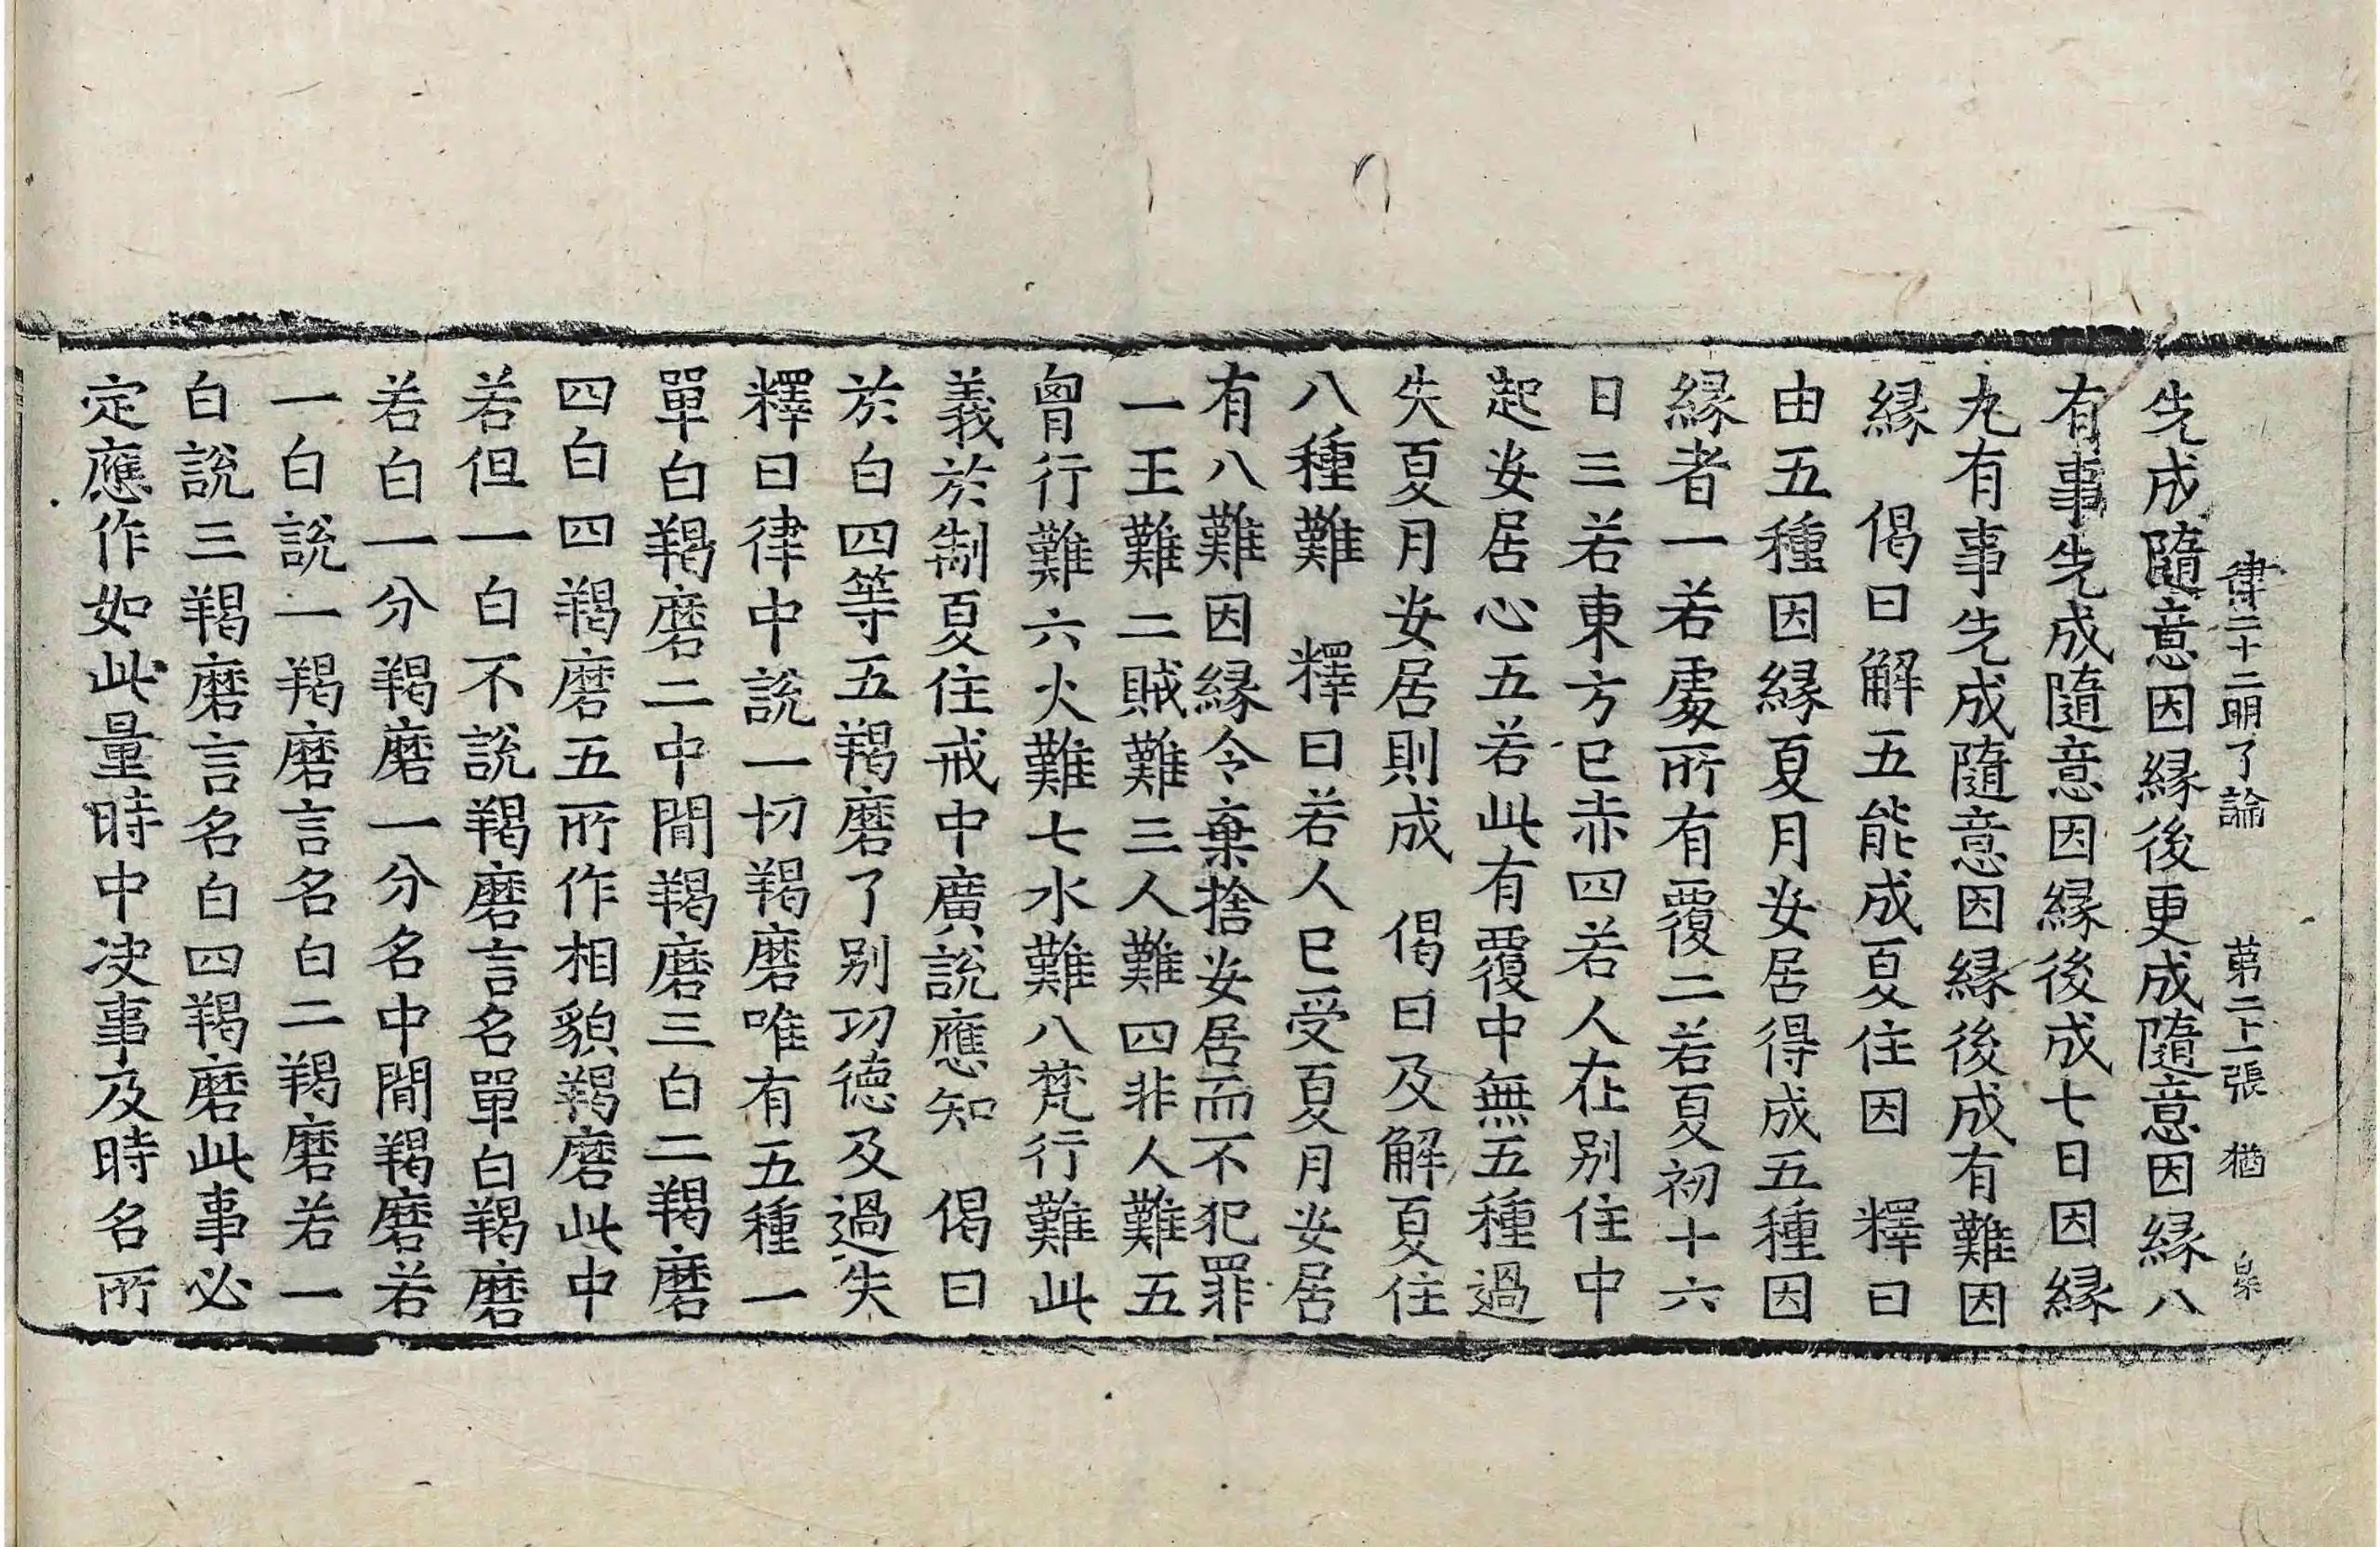 律二十二明了論　第二十一張　猶　泉
先成隨意因縁後更成隨意因縁八
有事先成隨意因縁後成七日因縁
九有事先成隨意因縁後成有難因
縁　偈曰解五能成夏住因　釋曰
由五種因縁夏月安居得成五種因
縁者一若處所有覆二若夏初十六
日三若東方巳赤四若人在別住中
起安居心五若此有覆中無五種過
失夏月安居則成　偈曰及解夏住
八種難　釋曰若人巳受夏月安居
有八難因縁令棄捨安居而不犯罪
一王難二賊難三人難四非人難五
𦚾行難六火難七水難八梵行難此
義於制夏住戒中廣說應知　偈曰
於白四等五羯磨了別功德及過失
釋曰律中說一切羯磨唯有五種一
單白羯磨二中間羯磨三白二羯磨
四白四羯磨五所作相貌羯磨此中
若但一白不說羯磨言名單白羯磨
若白一分羯磨一分名中間羯磨若
一白說一羯磨言名白二羯磨若一
白說三羯磨言名白四羯磨此事必
定應作如此量時中决事及時名所